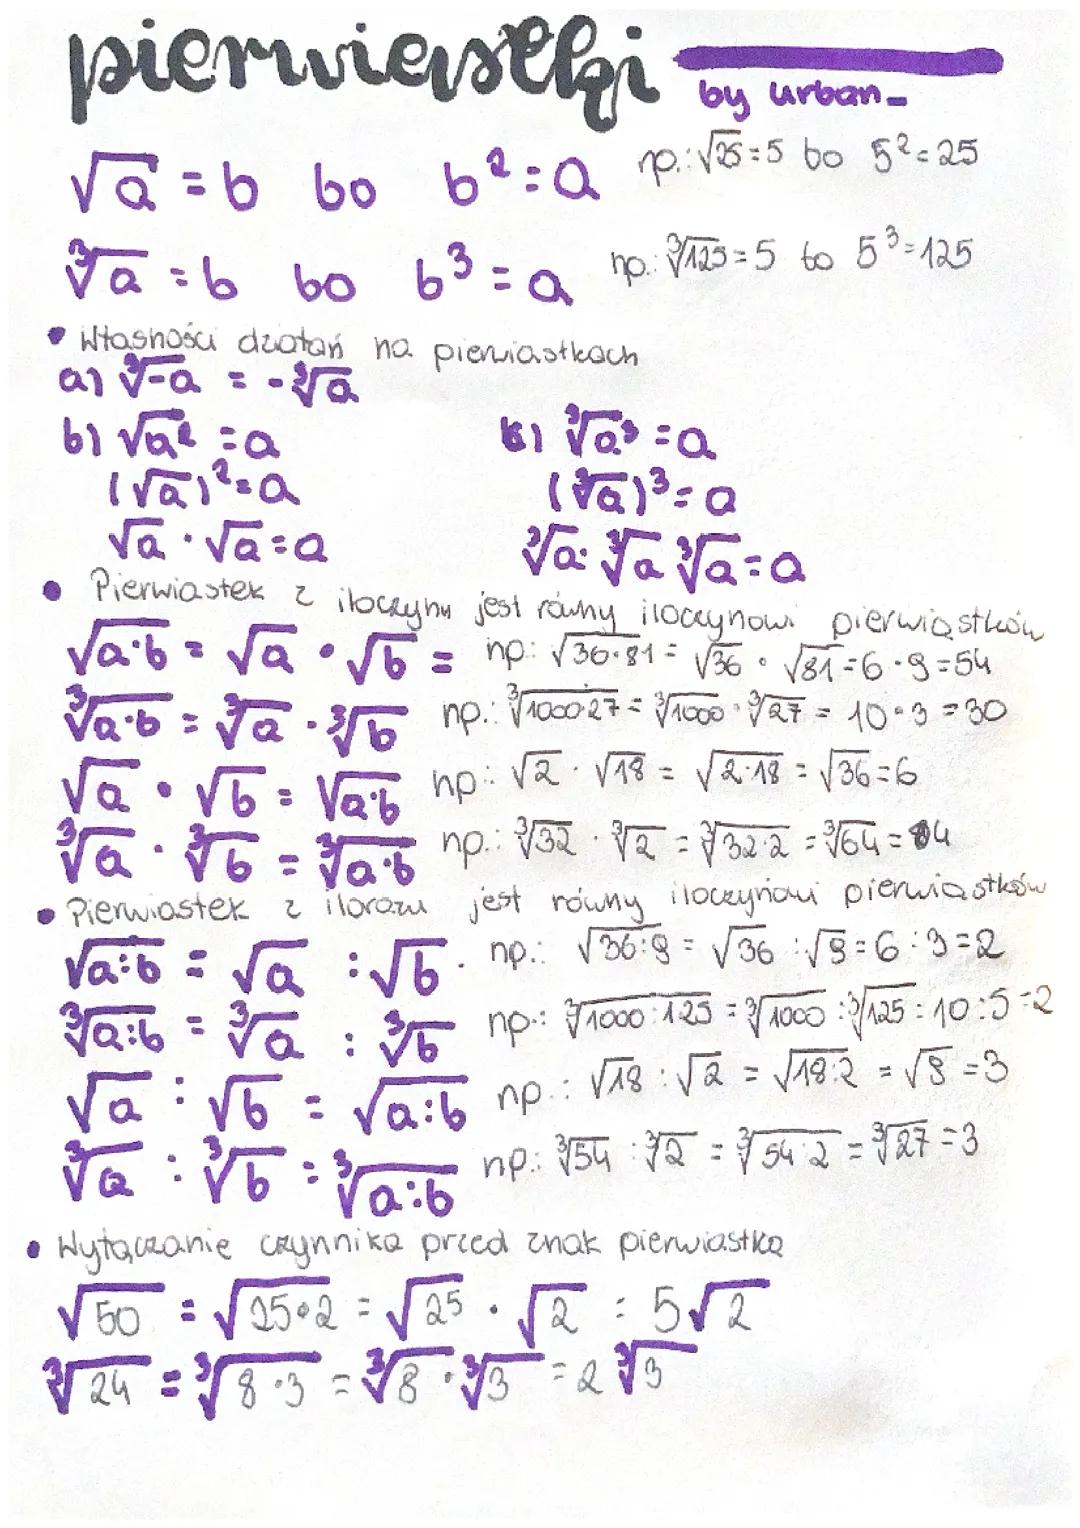 pierwiastki
by urban_
√a = b bo b² = a np.: √25 = 5 bo 5² = 25
³√a = b bo b³ = a np.: ³√125 = 5 bo 5³ = 125
• Własności działań na pierwiastkach
a) ³√-a = -³√a
b) √a² = a
(√a)² = a
√a · √a = a
c) ³√a³ = a
(³√a)³ = a
³√a · ³√a ³√a = a
• Pierwiastek z iloczynu jest równy iloczynowi pierwiastków
√a·b = √a · √b = np.: √36·81 = √36 · √81 = 6 · 9 = 54
³√a·b = ³√a · ³√b np.: ³√1000·27 = ³√1000 · ³√27 = 10 · 3 = 30
√a · √b = √a·b np.: √2 · √18 = √2·18 = √36 = 6
³√a · ³√b = ³√a·b np.: ³√32 · ³√2 = ³√32·2 = ³√64 = 4
• Pierwiastek z ilorazu jest równy iloczynowi pierwiastków
√a:b = √a : √b. np.: √36:9 = √36 : √9 = 6 : 3 = 2
³√a:b = ³√a : ³√b np.: ³√1000:125 = ³√1000 : ³√125 = 10 : 5 = 2
√a : √b = √a:b np.: √18 : √2 = √18:2 = √9 = 3
³√a : ³√b = ³√a:b np.: ³√54 : ³√2 = ³√54:2 = ³√27 = 3
• Wyłączanie czynnika przed znak pierwiastka
√50 = √25·2 = √25 · √2 = 5√2
³√24 = ³√8·3 = ³√8 · ³√3 = 2 ³√3